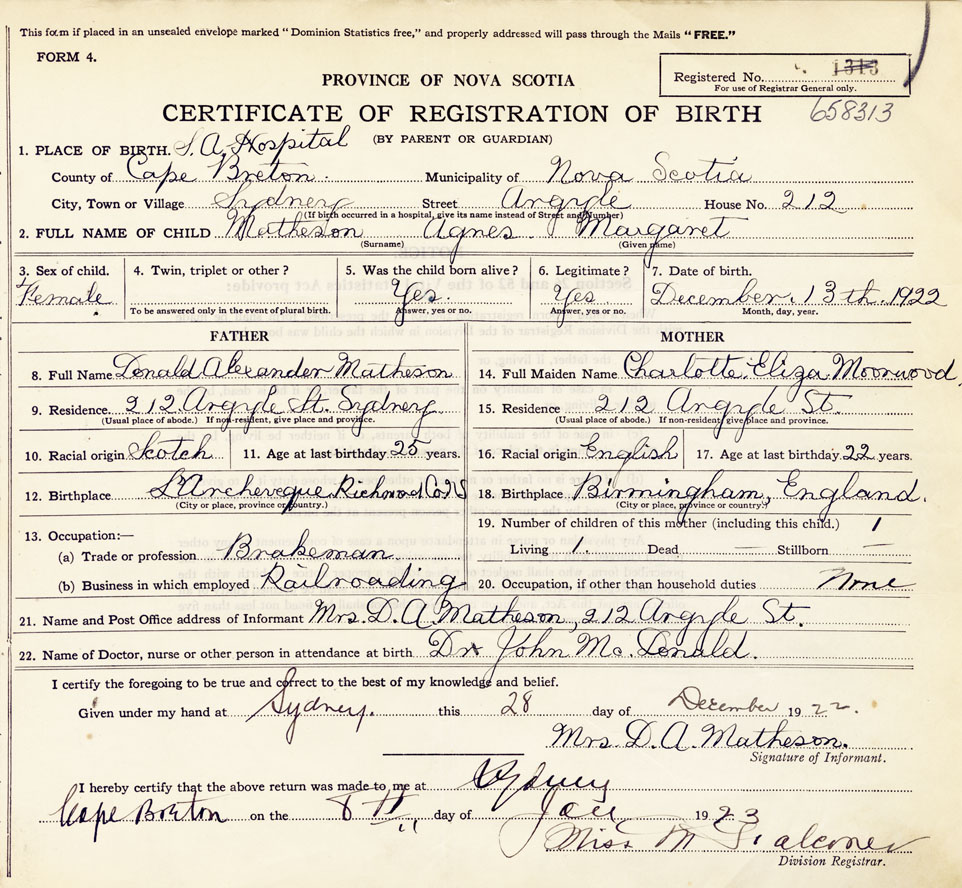 This form if placed in an unsealed envelope marked "Dominion Statistics free," and properly addressed will pass through the Mails "FREE."
FORM 4.
Registered No. 1313
For use of Registrar General only.
PROVINCE OF NOVA SCOTIA
CERTIFICATE OF REGISTRATION OF BIRTH 658313
(BY PARENT OR GUARDIAN)
1. PLACE OF BIRTH. S. A. Hospital
County of Cape Breton. Municipality of Nova Scotia
City, Town or Village Sydney Street Argyle House No. 212
(If birth occurred in a hospital, give its name instead of Street and Number)
2. FULL NAME OF CHILD Matheson Agnes. Margaret
(Surname) (Given name)
3. Sex of child. 4. Twin, triplet or other? 5. Was the child born alive? 6. Legitimate? 7. Date of birth.
Female. Yes. Yes December. 13th. 1922
To be answered only in the event of plural birth. Answer, yes or no. Answer, yes or no. Month, day, year.
FATHER MOTHER
8. Full Name Donald Alexander Matheson 14. Full Maiden Name Charlotte Eliza Moorwood
9. Residence. 212 Argyle St. Sydney 15. Residence 212 Argyle St.
(Usual place of abode.) If non-resident, give place and province. (Usual place of abode.) If non-resident, give place and province.
10. Racial origin Scotch 11. Age at last birthday 25 years. 16. Racial origin English 17. Age at last birthday 22 years.
12. Birthplace L'Archeveque Richmond Co N S 18. Birthplace Birmingham, England.
(City or place, province or country.) (City or place, province or country.)
19. Number of children of this mother (including this child.) 1
13. Occupation:—
(a) Trade or profession Brakeman. Living 1. Dead, — Stillborn —
(b) Business in which employed Railroading 20. Occupation, if other than household duties None
21. Name and Post Office address of Informant Mrs. D. A. Matheson, 212 Argyle St.
22. Name of Doctor, nurse or other person in attendance at birth Dr John Mc. Donald.
I certify the foregoing to be true and correct to the best of my knowledge and belief.
Given under my hand at Sydney. this 28 day of December 1922.
Mrs. D. A. Matheson.
Signature of Informant.
I hereby certify that the above return was made to me at Sydney
Cape Breton on the 8th day of Jan 1923
Miss M Falconer
Division Registrar.